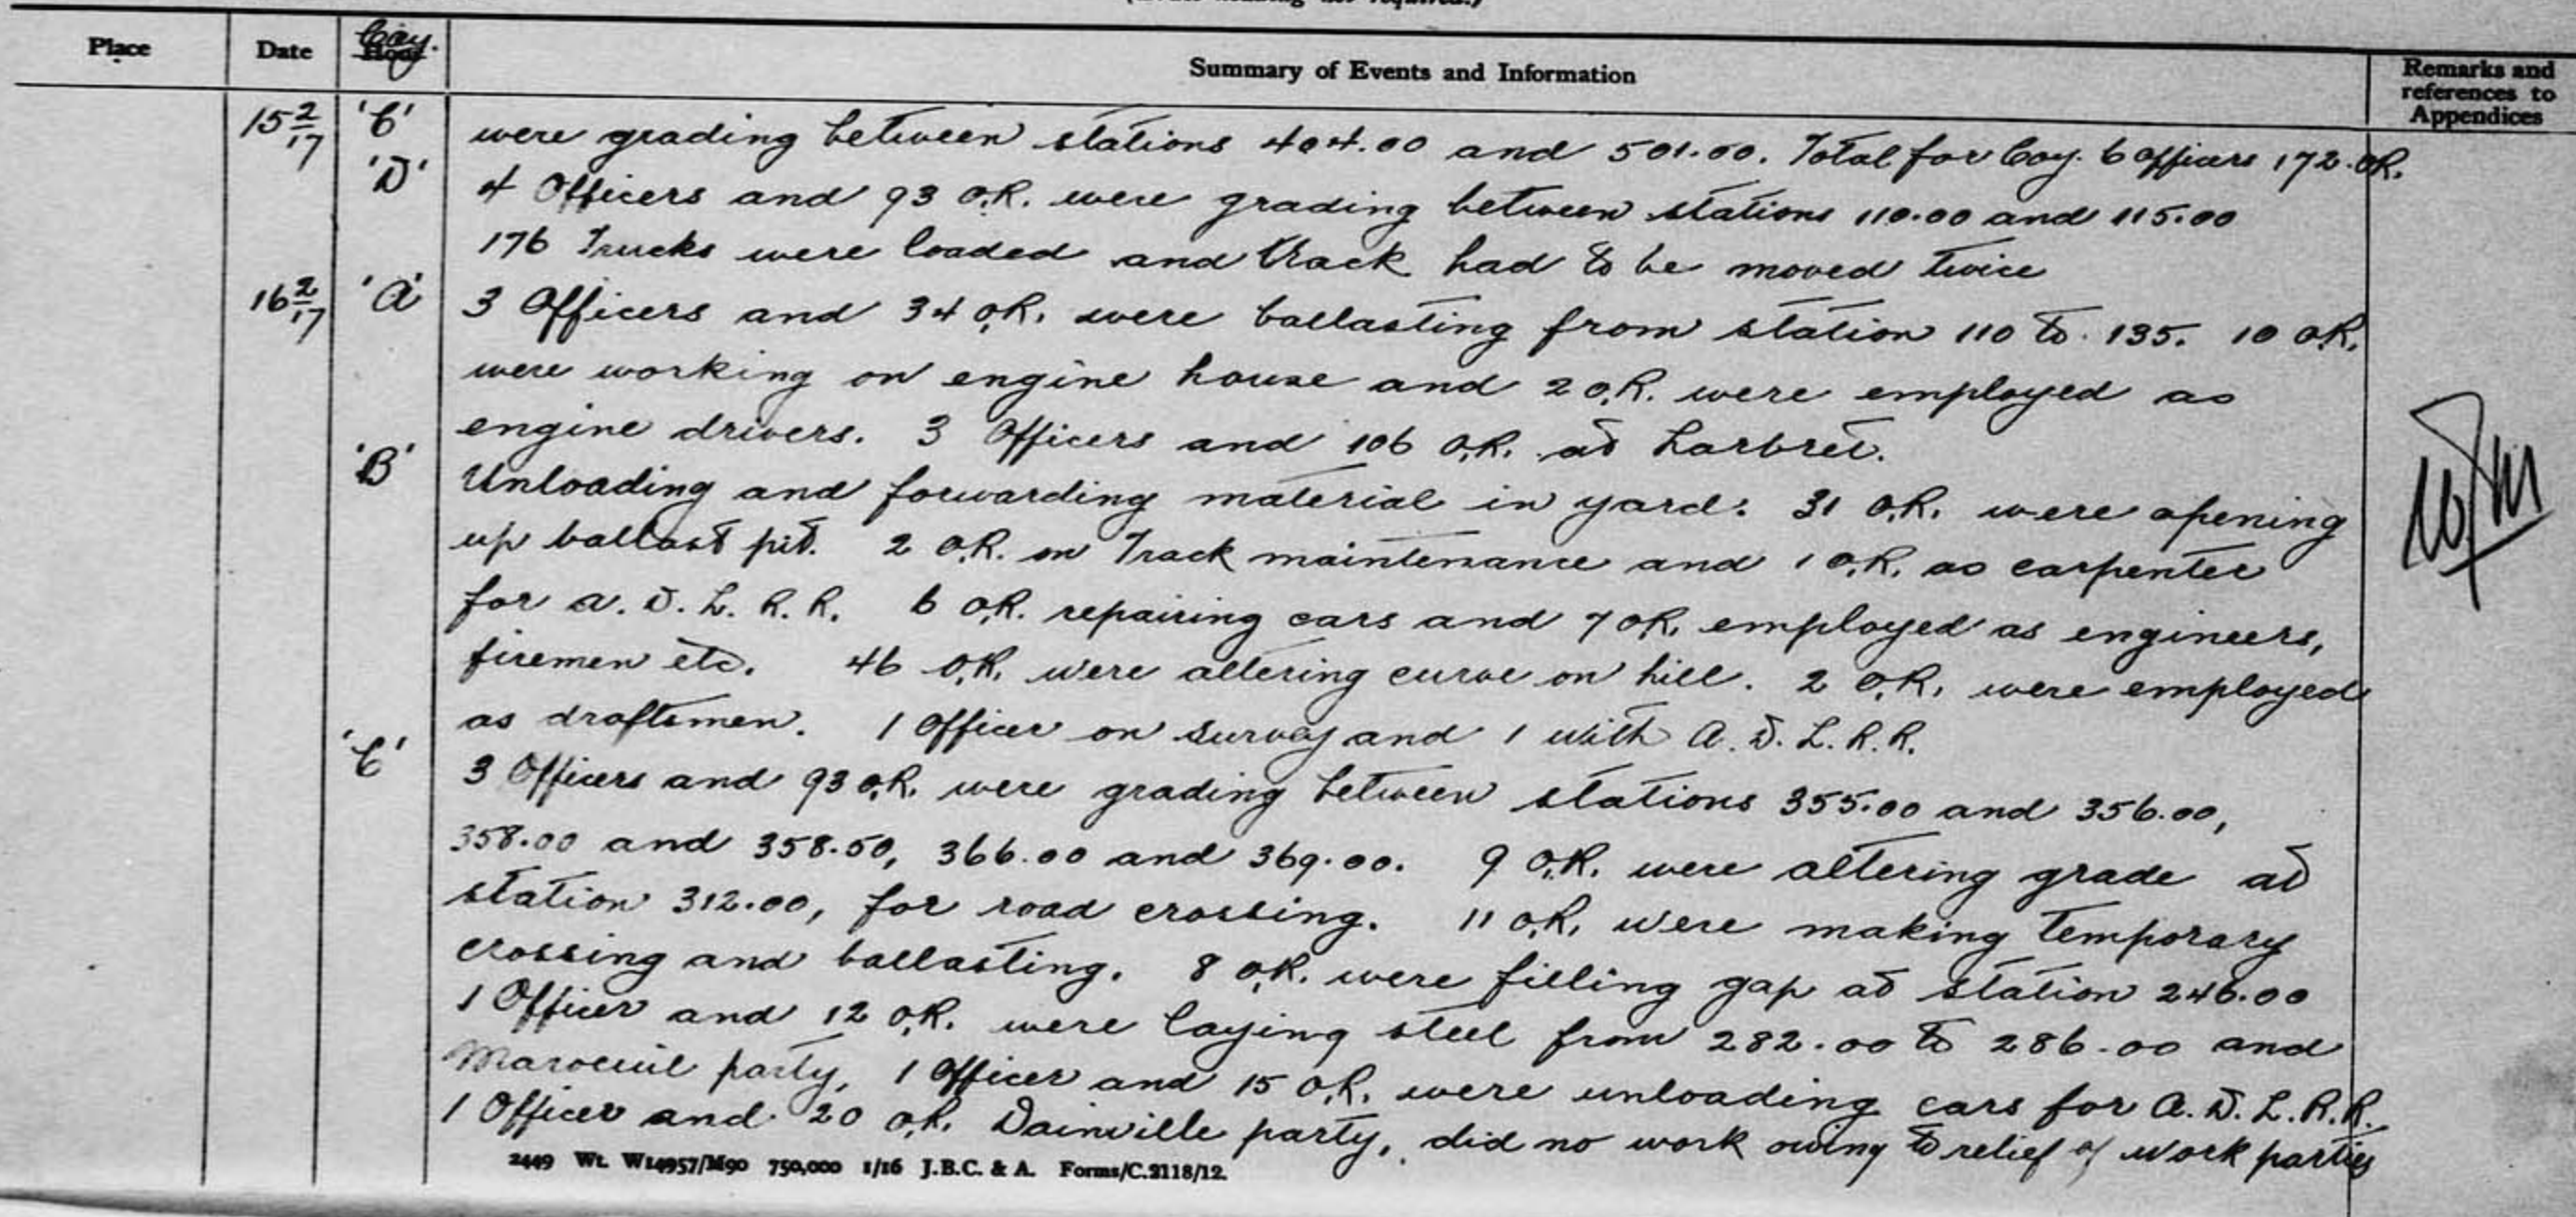 Place Date Coy. Hour Summary of Events and Information Remarks and references to Appendices
15 2/17 'C' were grading between stations 404.00 and 501.00. Total for Coy. 6 Officers 172 O.R.
'D' 4 Officers and 93 O.R. were grading between stations 110.00 and 115.00
176 Trucks were loaded and track had to be moved twice
16 2/17 'A' 3 Officers and 34 O.R. were ballasting from station 110 to 135. 10 O.R.
were working on engine house and 2 O.R. were employed as
engine drivers. 3 Officers and 106 O.R. at Larbret.
'B' Unloading and forwarding material in yard: 31 O.R. were opening
up ballast pit. 2 O.R. on Track maintenance and 1 O.R. as carpenter
for A.D.L.R.R. 6 O.R. repairing cars and 7 O.R. employed as engineers,
firemen etc. 46 O.R. were altering curve on hill. 2 O.R. were employed
as draftsmen. 1 Officer on survey and 1 with A.D.L.R.R.
'C' 3 Officers and 93 O.R. were grading between stations 355.00 and 356.00,
358.00 and 358.50, 366.00 and 369.00. 9 O.R. were altering grade at
station 312.00, for road crossing. 11 O.R. were making temporary
crossing and ballasting. 8 O.R. were filling gap at station 246.00
1 Officer and 12 O.R. were laying steel from 282.00 to 286.00 and
Maroeuil party, 1 Officer and 15 O.R. were unloading cars for A.D.L.R.R.
1 Officer and 20 O.R. Dainville party, did no work owing to relief of work parties
2449 Wt. W14957/M90 750,000 1/16 J.B.C. & A. Forms/C.2118/12.